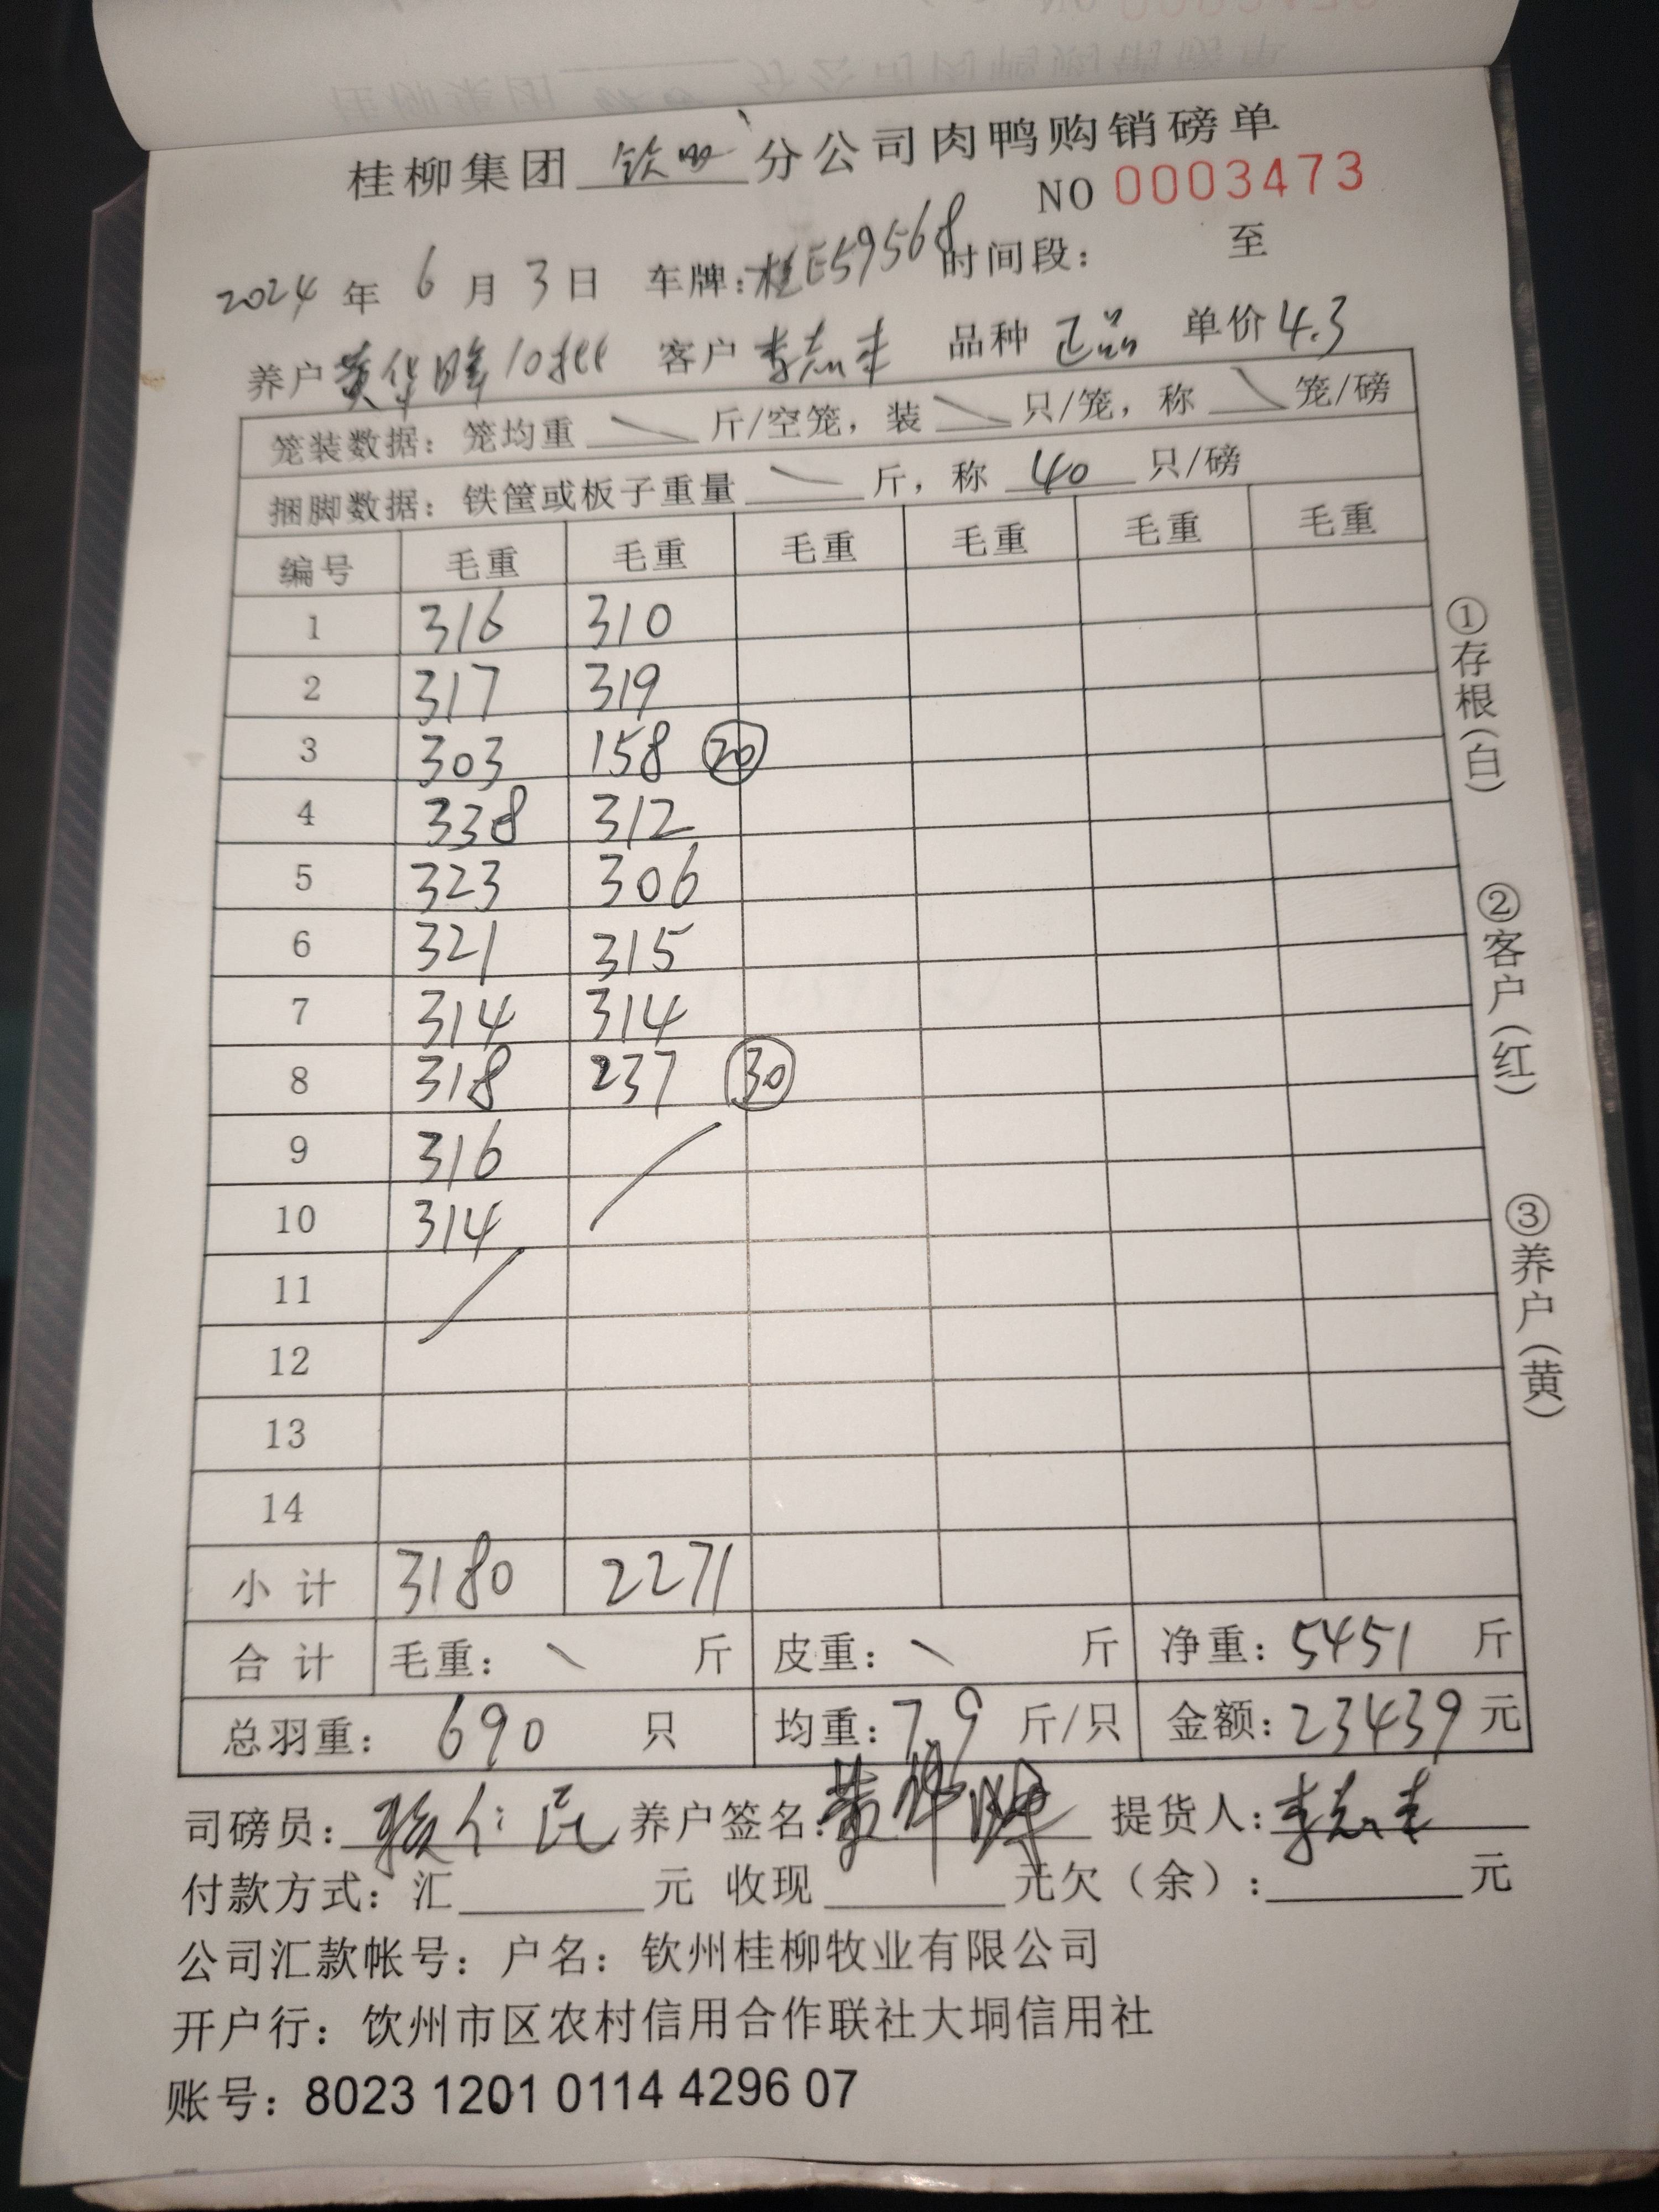 桂柳集团 钦州 分公司肉鸭购销磅单
NO 0003473
2024 年 6 月 3 日 车牌:桂E59568 时间段: 至
养户 黄华晖 10批 客户 李志丰 品种 正品 单价 4.3
笼装数据: 笼均重 \ 斤/空笼, 装 \ 只/笼, 称 \ 笼/磅
捆脚数据: 铁筐或板子重量 \ 斤, 称 40 只/磅
编号 毛重 毛重 毛重 毛重 毛重 毛重
1 316 310
2 317 319
3 303 158 20
4 338 312
5 323 306
6 321 315
7 314 314
8 318 237 30
9 316
10 314
11
12
13
14
小 计 3180 2271
合 计 毛重: \ 斤 皮重: \ 斤 净重: 5451 斤
总羽重: 690 只 均重: 7.9 斤/只 金额: 23439 元
司磅员: 仁民 养户签名: 黄华晖 提货人: 李志丰
付款方式: 汇 元 收现 元欠（余）: 元
公司汇款帐号: 户名: 钦州桂柳牧业有限公司
开户行: 钦州市区农村信用合作联社大垌信用社
账号: 8023 1201 0114 4296 07
①存根(白)
②客户(红)
③养户(黄)